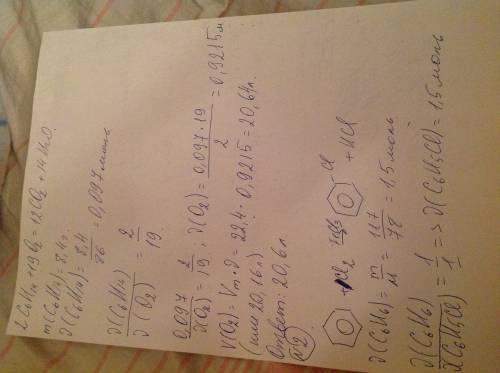 2 C₆H₁₄ + 19 O₂ = 12CO₂ + 14 H₂O
m(C₆H₁₄) = 8,4г.
∂(C₆H₁₄) = 8,4 / 86 = 0,097 моль
∂(C₆H₁₄) / ∂(O₂) = 2 / 19
0,097 / ∂(O₂) = 2 / 19 ; ∂(O₂) = 0,097 · 19 / 2 = 0,9215 м
V(O₂) = Vm · ∂ = 22,4 · 0,9215 = 20,64л.
(или 20,16л)
Ответ: 20,6л.
№2
+ Cl₂ → Cl + HCl
∂(C₆H₆) = m / M = 117 / 78 = 1,5 моль
∂(C₆H₆) / ∂(C₆H₅Cl) = 1 / 1 => ∂(C₆H₅Cl) = 1,5 моль